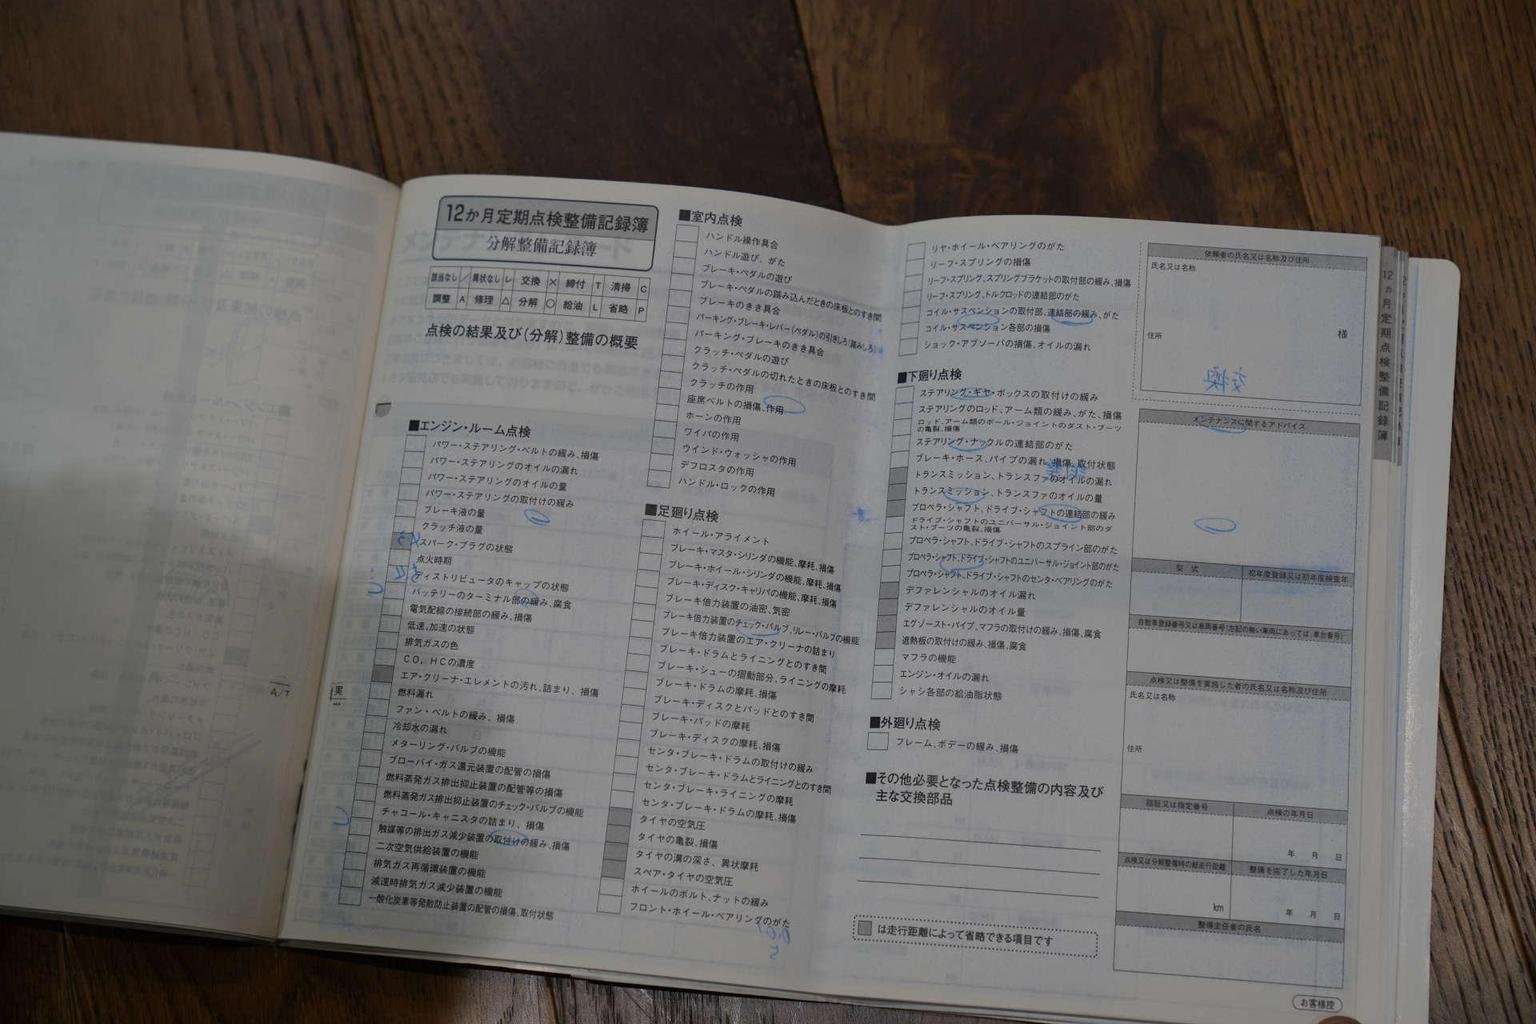 12か月定期点検整備記録簿
分解整備記録簿
該当なし ／ 異状なし レ 交換 × 締付 T 清掃 C
調整 A 修理 △ 分解 ○ 給油 L 省略 P
点検の結果及び(分解)整備の概要
■エンジン・ルーム点検
パワー・ステアリング・ベルトの緩み、損傷
パワー・ステアリングのオイルの漏れ
パワー・ステアリングのオイルの量
パワー・ステアリングの取付けの緩み
ブレーキ液の量
クラッチ液の量
スパーク・プラグの状態
点火時期
ディストリビュータのキャップの状態
バッテリーのターミナル部の緩み、腐食
電気配線の接続部の緩み、損傷
低速、加速の状態
排気ガスの色
CO、HCの濃度
エア・クリーナ・エレメントの汚れ、詰まり、損傷
燃料漏れ
ファン・ベルトの緩み、損傷
冷却水の漏れ
メターリング・バルブの機能
ブローバイ・ガス還元装置の配管の損傷
燃料蒸発ガス排出抑止装置の配管等の損傷
燃料蒸発ガス排出抑止装置のチェック・バルブの機能
チャコール・キャニスタの詰まり、損傷
触媒等の排出ガス減少装置の取付けの緩み、損傷
二次空気供給装置の機能
排気ガス再循環装置の機能
減速時排気ガス減少装置の機能
一酸化炭素等発散防止装置の配管の損傷、取付状態
■室内点検
ハンドル操作具合
ハンドル遊び、がた
ブレーキ・ペダルの遊び
ブレーキ・ペダルの踏み込んだときの床板とのすき間
ブレーキのきき具合
パーキング・ブレーキ・レバー(ペダル)の引きしろ(踏みしろ)
パーキング・ブレーキのきき具合
クラッチ・ペダルの遊び
クラッチ・ペダルの切れたときの床板とのすき間
クラッチの作用
座席ベルトの損傷、作用
ホーンの作用
ワイパの作用
ウインド・ウォッシャの作用
デフロスタの作用
ハンドル・ロックの作用
■足廻り点検
ホイール・アライメント
ブレーキ・マスタ・シリンダの機能、摩耗、損傷
ブレーキ・ホイール・シリンダの機能、摩耗、損傷
ブレーキ・ディスク・キャリパの機能、摩耗、損傷
ブレーキ倍力装置の油密、気密
ブレーキ倍力装置のチェック・バルブ、リレー・バルブの機能
ブレーキ倍力装置のエア・クリーナの詰まり
ブレーキ・ドラムとライニングとのすき間
ブレーキ・シューの摺動部分、ライニングの摩耗
ブレーキ・ドラムの摩耗、損傷
ブレーキ・ディスクとパッドとのすき間
ブレーキ・パッドの摩耗
ブレーキ・ディスクの摩耗、損傷
センタ・ブレーキ・ドラムの取付けの緩み
センタ・ブレーキ・ドラムとライニングとのすき間
センタ・ブレーキ・ライニングの摩耗
センタ・ブレーキ・ドラムの摩耗、損傷
タイヤの空気圧
タイヤの亀裂、損傷
タイヤの溝の深さ、異状摩耗
スペア・タイヤの空気圧
ホイールのボルト、ナットの緩み
フロント・ホイール・ベアリングのがた
リヤ・ホイール・ベアリングのがた
リーフ・スプリングの損傷
リーフ・スプリング、スプリングブラケットの取付部の緩み、損傷
リーフ・スプリング、トルクロッドの連結部のがた
コイル・サスペンションの取付部、連結部の緩み、がた
コイル・サスペンション各部の損傷
ショック・アブソーバの損傷、オイルの漏れ
■下廻り点検
ステアリング・ギヤ・ボックスの取付けの緩み
ステアリングのロッド、アーム類の緩み、がた、損傷
ロッド、アーム類のボール・ジョイントのダスト・ブーツ
の亀裂、損傷
ステアリング・ナックルの連結部のがた
ブレーキ・ホース、パイプの漏れ、損傷、取付状態
トランスミッション、トランスファのオイルの漏れ
トランスミッション、トランスファのオイルの量
プロペラ・シャフト、ドライブ・シャフトの連結部の緩み
ドライブ・シャフトのユニバーサル・ジョイント部のダ
スト・ブーツの亀裂、損傷
プロペラ・シャフト、ドライブ・シャフトのスプライン部のがた
プロペラ・シャフト、ドライブ・シャフトのユニバーサル・ジョイント部のがた
プロペラ・シャフト、ドライブ・シャフトのセンタ・ベアリングのがた
デファレンシャルのオイル漏れ
デファレンシャルのオイル量
エグゾースト・パイプ、マフラの取付けの緩み、損傷、腐食
遮熱板の取付けの緩み、損傷、腐食
マフラの機能
エンジン・オイルの漏れ
シャシ各部の給油脂状態
■外廻り点検
フレーム、ボデーの緩み、損傷
■その他必要となった点検整備の内容及び
主な交換部品
は走行距離によって省略できる項目です
依頼者の氏名又は名称及び住所
氏名又は名称
様
住所
メンテナンスに関するアドバイス
型式
初年度登録又は初年度検査年
点検又は整備を実施した者の氏名又は名称及び住所
氏名又は名称
住所
認証又は指定番号
点検の年月日
年 月 日
点検又は分解整備時の総走行距離
整備を完了した年月日
km
年 月 日
整備主任者の氏名
お客様控
12か月定期点検整備記録簿